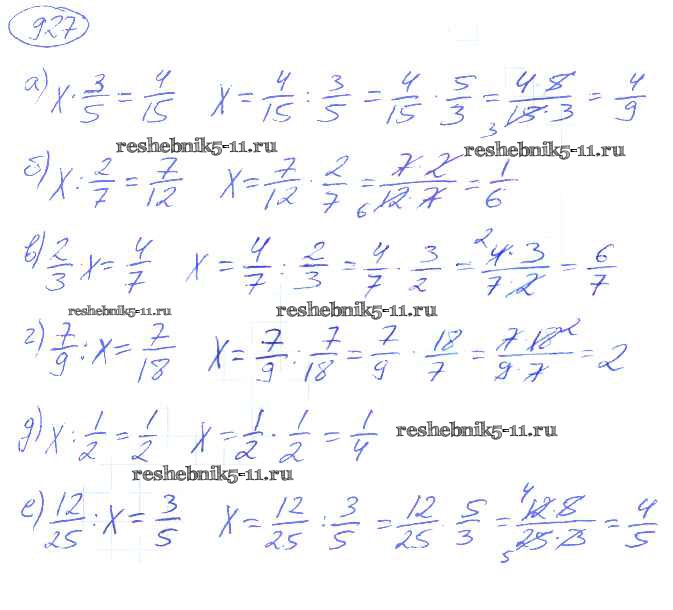 927
а) x · 3/5 = 4/15 x = 4/15 : 3/5 = 4/15 · 5/3 = 4·5/15·3 = 4/9
3
reshebnik5-11.ru reshebnik5-11.ru
б) x : 2/7 = 7/12 x = 7/12 · 2/7 = 7·2/12·7 = 1/6
6
в) 2/3 · x = 4/7 x = 4/7 : 2/3 = 4/7 · 3/2 = 4·3/7·2 = 6/7
2
reshebnik5-11.ru reshebnik5-11.ru
г) 7/9 : x = 7/18 x = 7/9 : 7/18 = 7/9 · 18/7 = 7·18/9·7 = 2
2
д) x : 1/2 = 1/2 x = 1/2 · 1/2 = 1/4 reshebnik5-11.ru
reshebnik5-11.ru
е) 12/25 : x = 3/5 x = 12/25 : 3/5 = 12/25 · 5/3 = 12·5/25·3 = 4/5
4
5